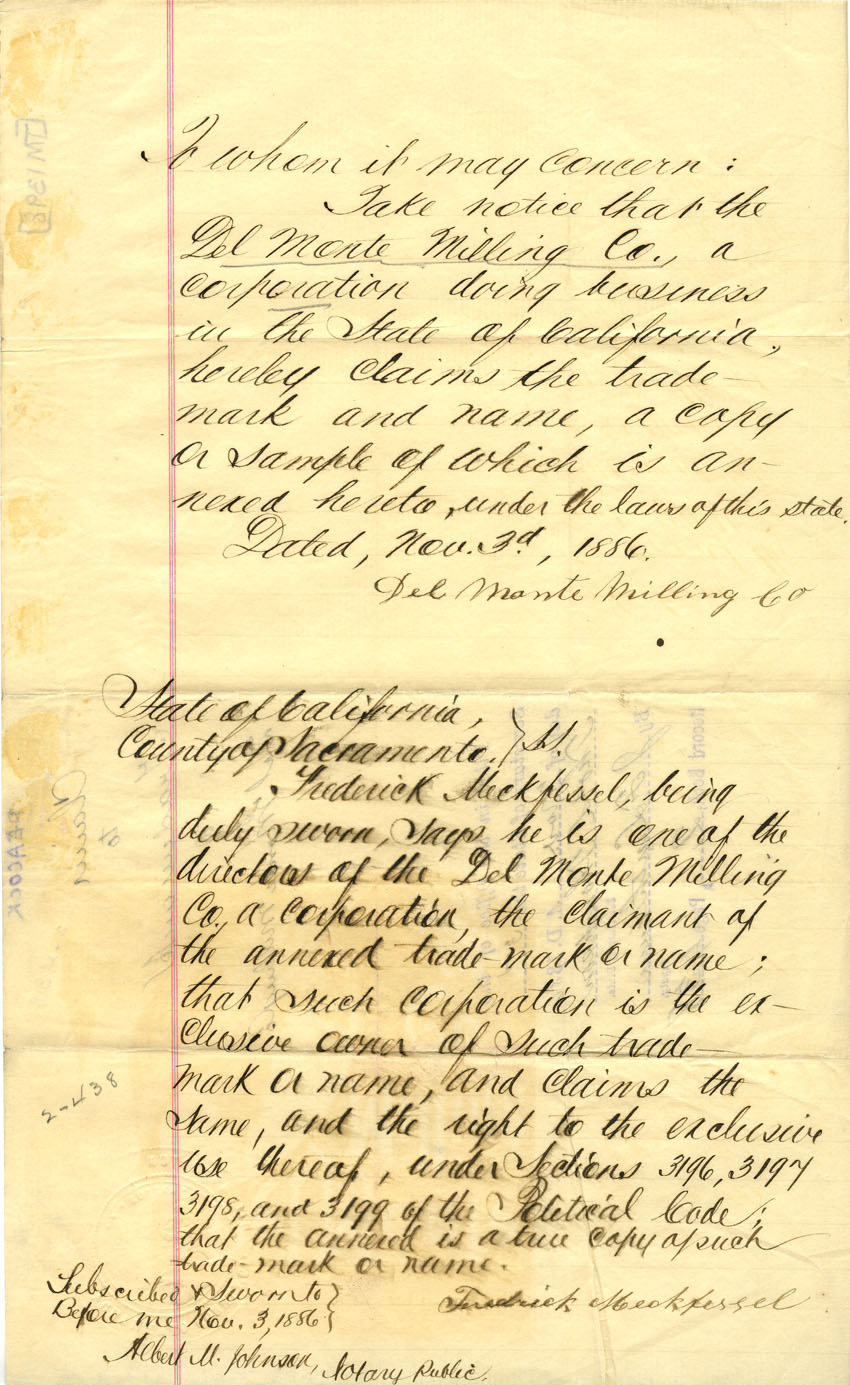 To whom it may concern:
Take notice that the
Del Monte Milling Co., a
corporation doing business
in the State of California,
hereby claims the trade-
mark and name, a copy
or sample of which is an-
nexed hereto, under the laws of this state.
Dated, Nov. 3d, 1886.
Del Monte Milling Co
State of California,
County of Sacramento. } ss.
Frederick Meckfessel, being
duly sworn, says he is one of the
directors of the Del Monte Milling
Co., a corporation, the claimant of
the annexed trade-mark or name;
that such corporation is the ex-
clusive owner of such trade-
mark or name, and claims the
same, and the right to the exclusive
use thereof, under Sections 3196, 3197
3198, and 3199 of the Political Code;
that the annexed is a true copy of such
trade-mark or name.
Subscribed & Sworn to }
Before me Nov. 3, 1886 }
Fredrick Meckfessel
Albert M. Johnson, Notary Public.
2-438
PEACOCK